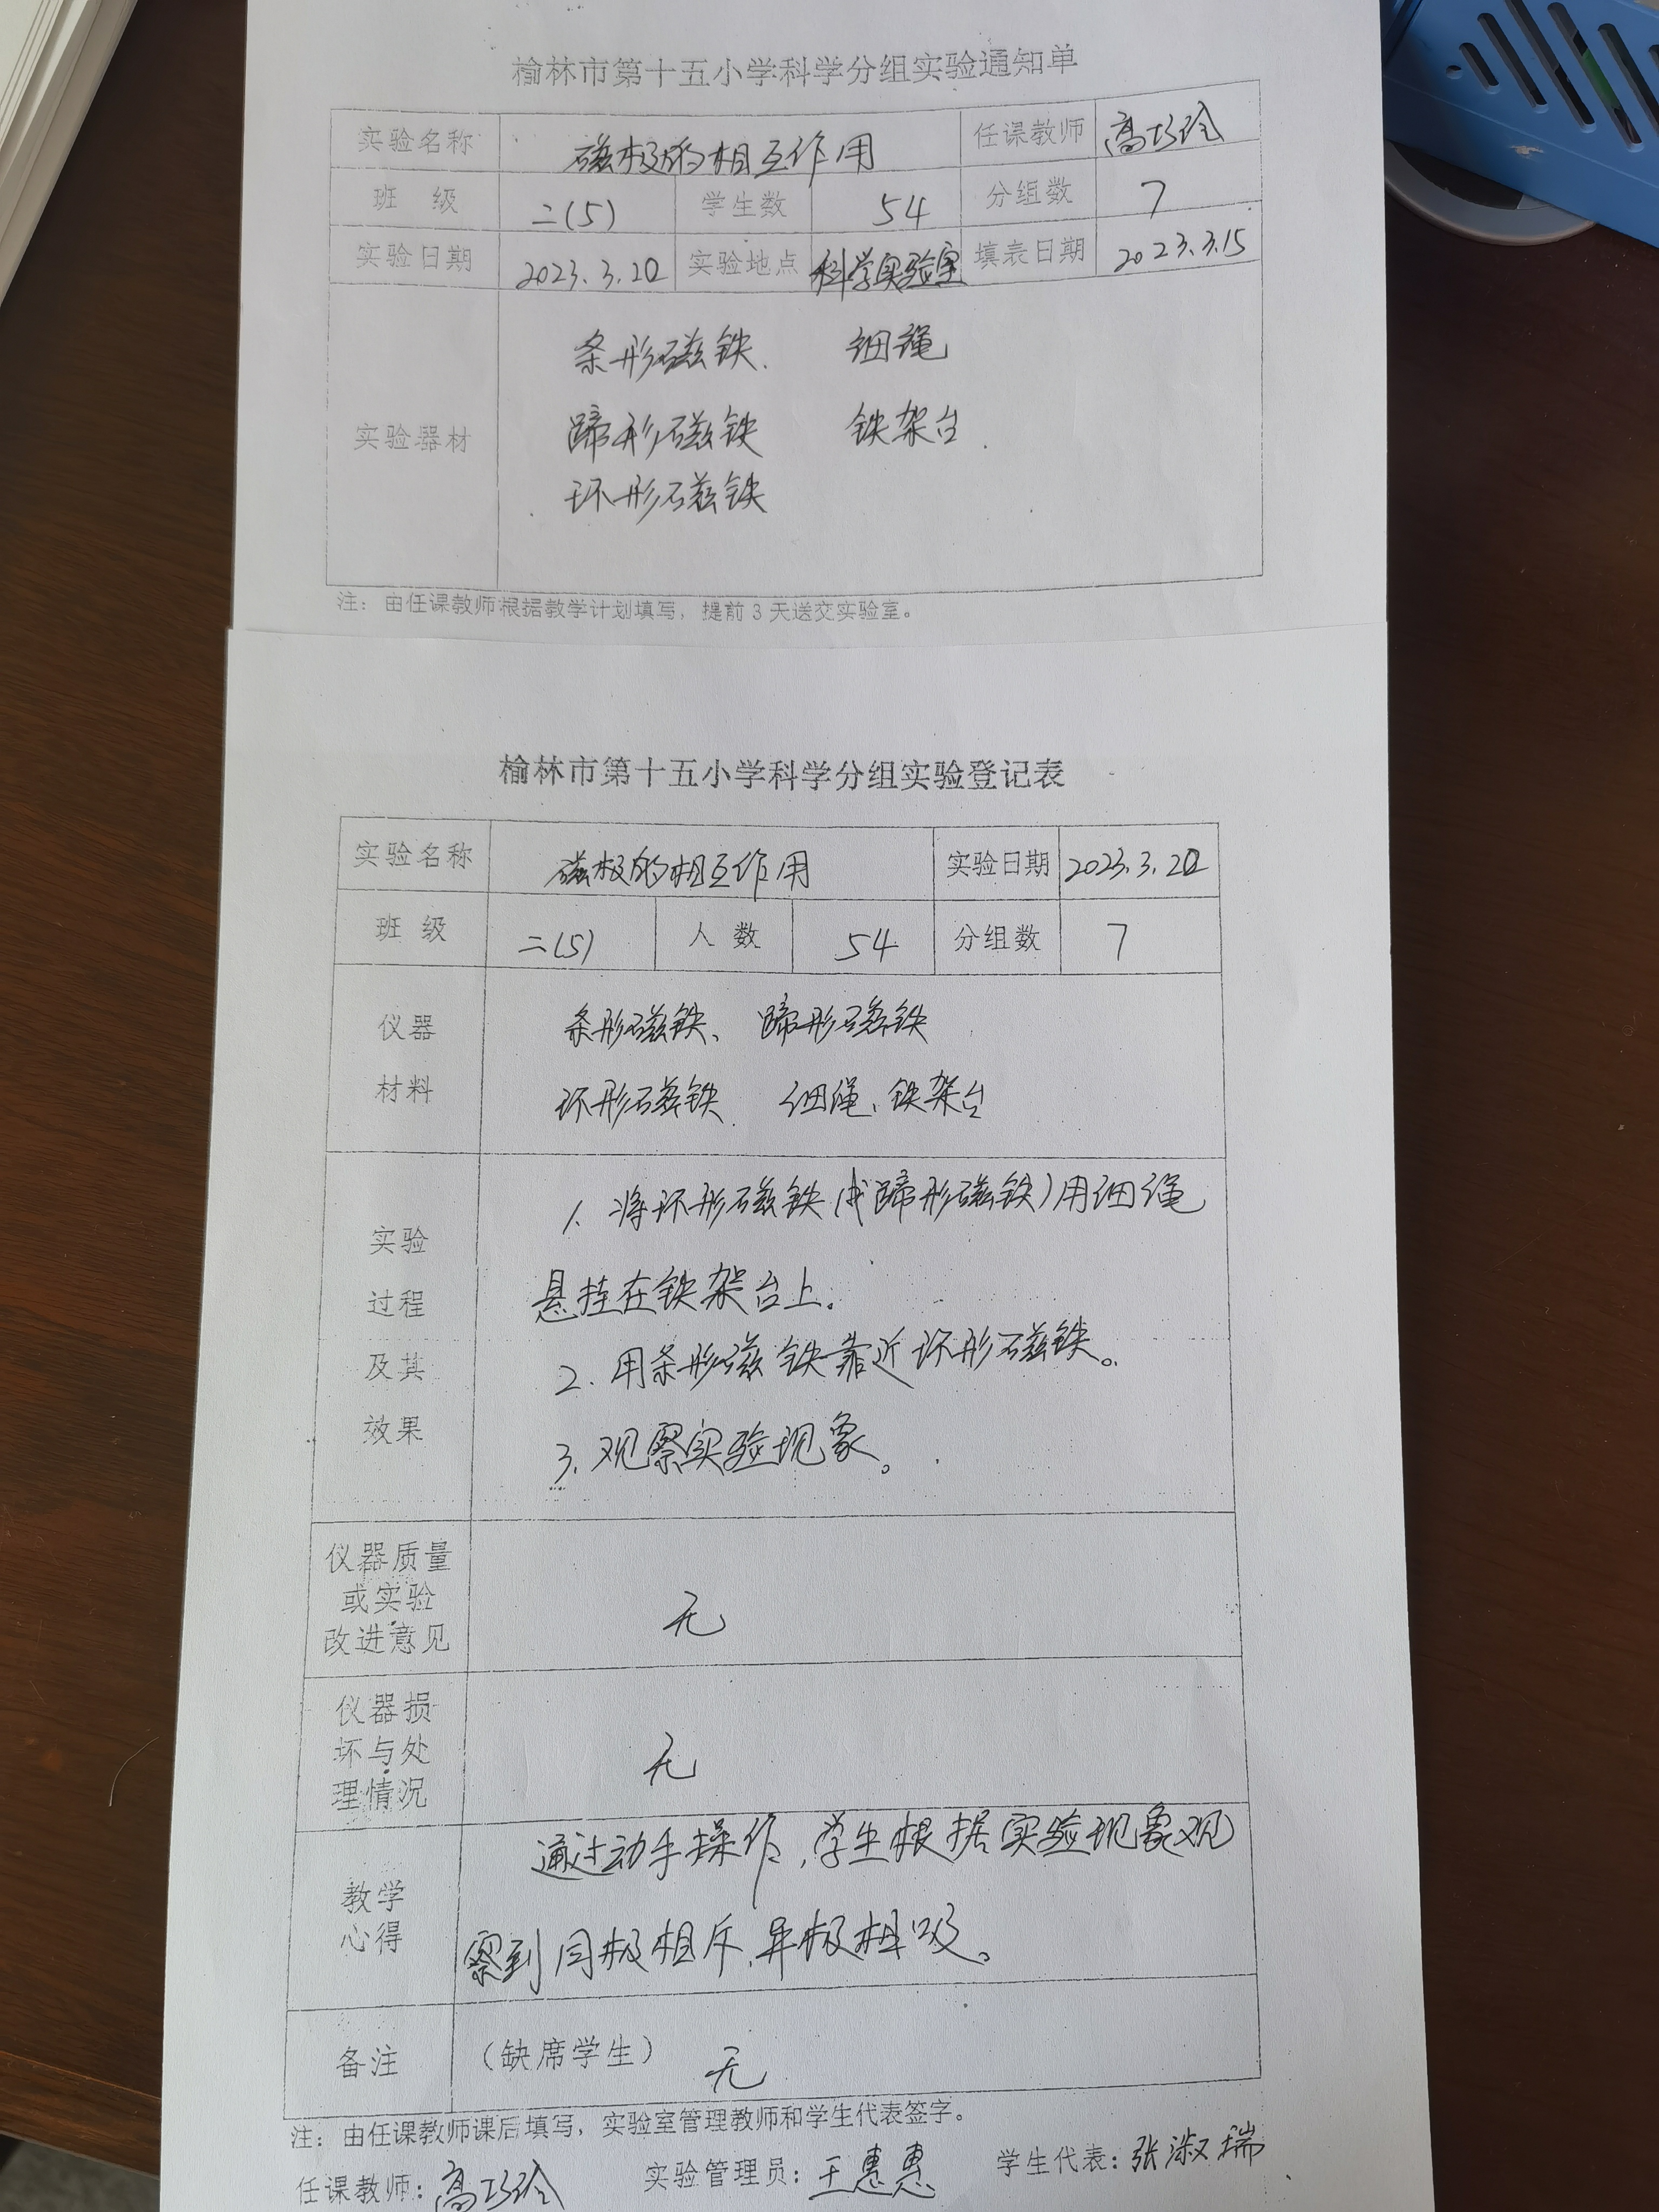 榆林市第十五小学科学分组实验通知单
实验名称 磁极的相互作用 任课教师 高巧玲
班 级 二(5) 学生数 54 分组数 7
实验日期 2023.3.20 实验地点 科学实验室 填表日期 2023.3.15
条形磁铁. 细绳
实验器材 蹄形磁铁 铁架台.
环形磁铁
注：由任课教师根据教学计划填写，提前 3 天送交实验室。
榆林市第十五小学科学分组实验登记表
实验名称 磁极的相互作用 实验日期 2023.3.20
班 级 二(5) 人 数 54 分组数 7
仪器 条形磁铁、 蹄形磁铁
材料 环形磁铁. 细绳、铁架台
1. 将环形磁铁(或蹄形磁铁)用细绳
实验
过程 悬挂在铁架台上。
及其 2. 用条形磁铁靠近环形磁铁。
效果 3. 观察实验现象。
仪器质量
或实验 无
改进意见
仪器损
坏与处 无
理情况
通过动手操作,学生根据实验现象观
教学
心得 察到同极相斥,异极相吸。
备注 （缺席学生） 无
注：由任课教师课后填写，实验室管理教师和学生代表签字。
任课教师：高巧玲 实验管理员：王惠惠 学生代表：张淑瑞